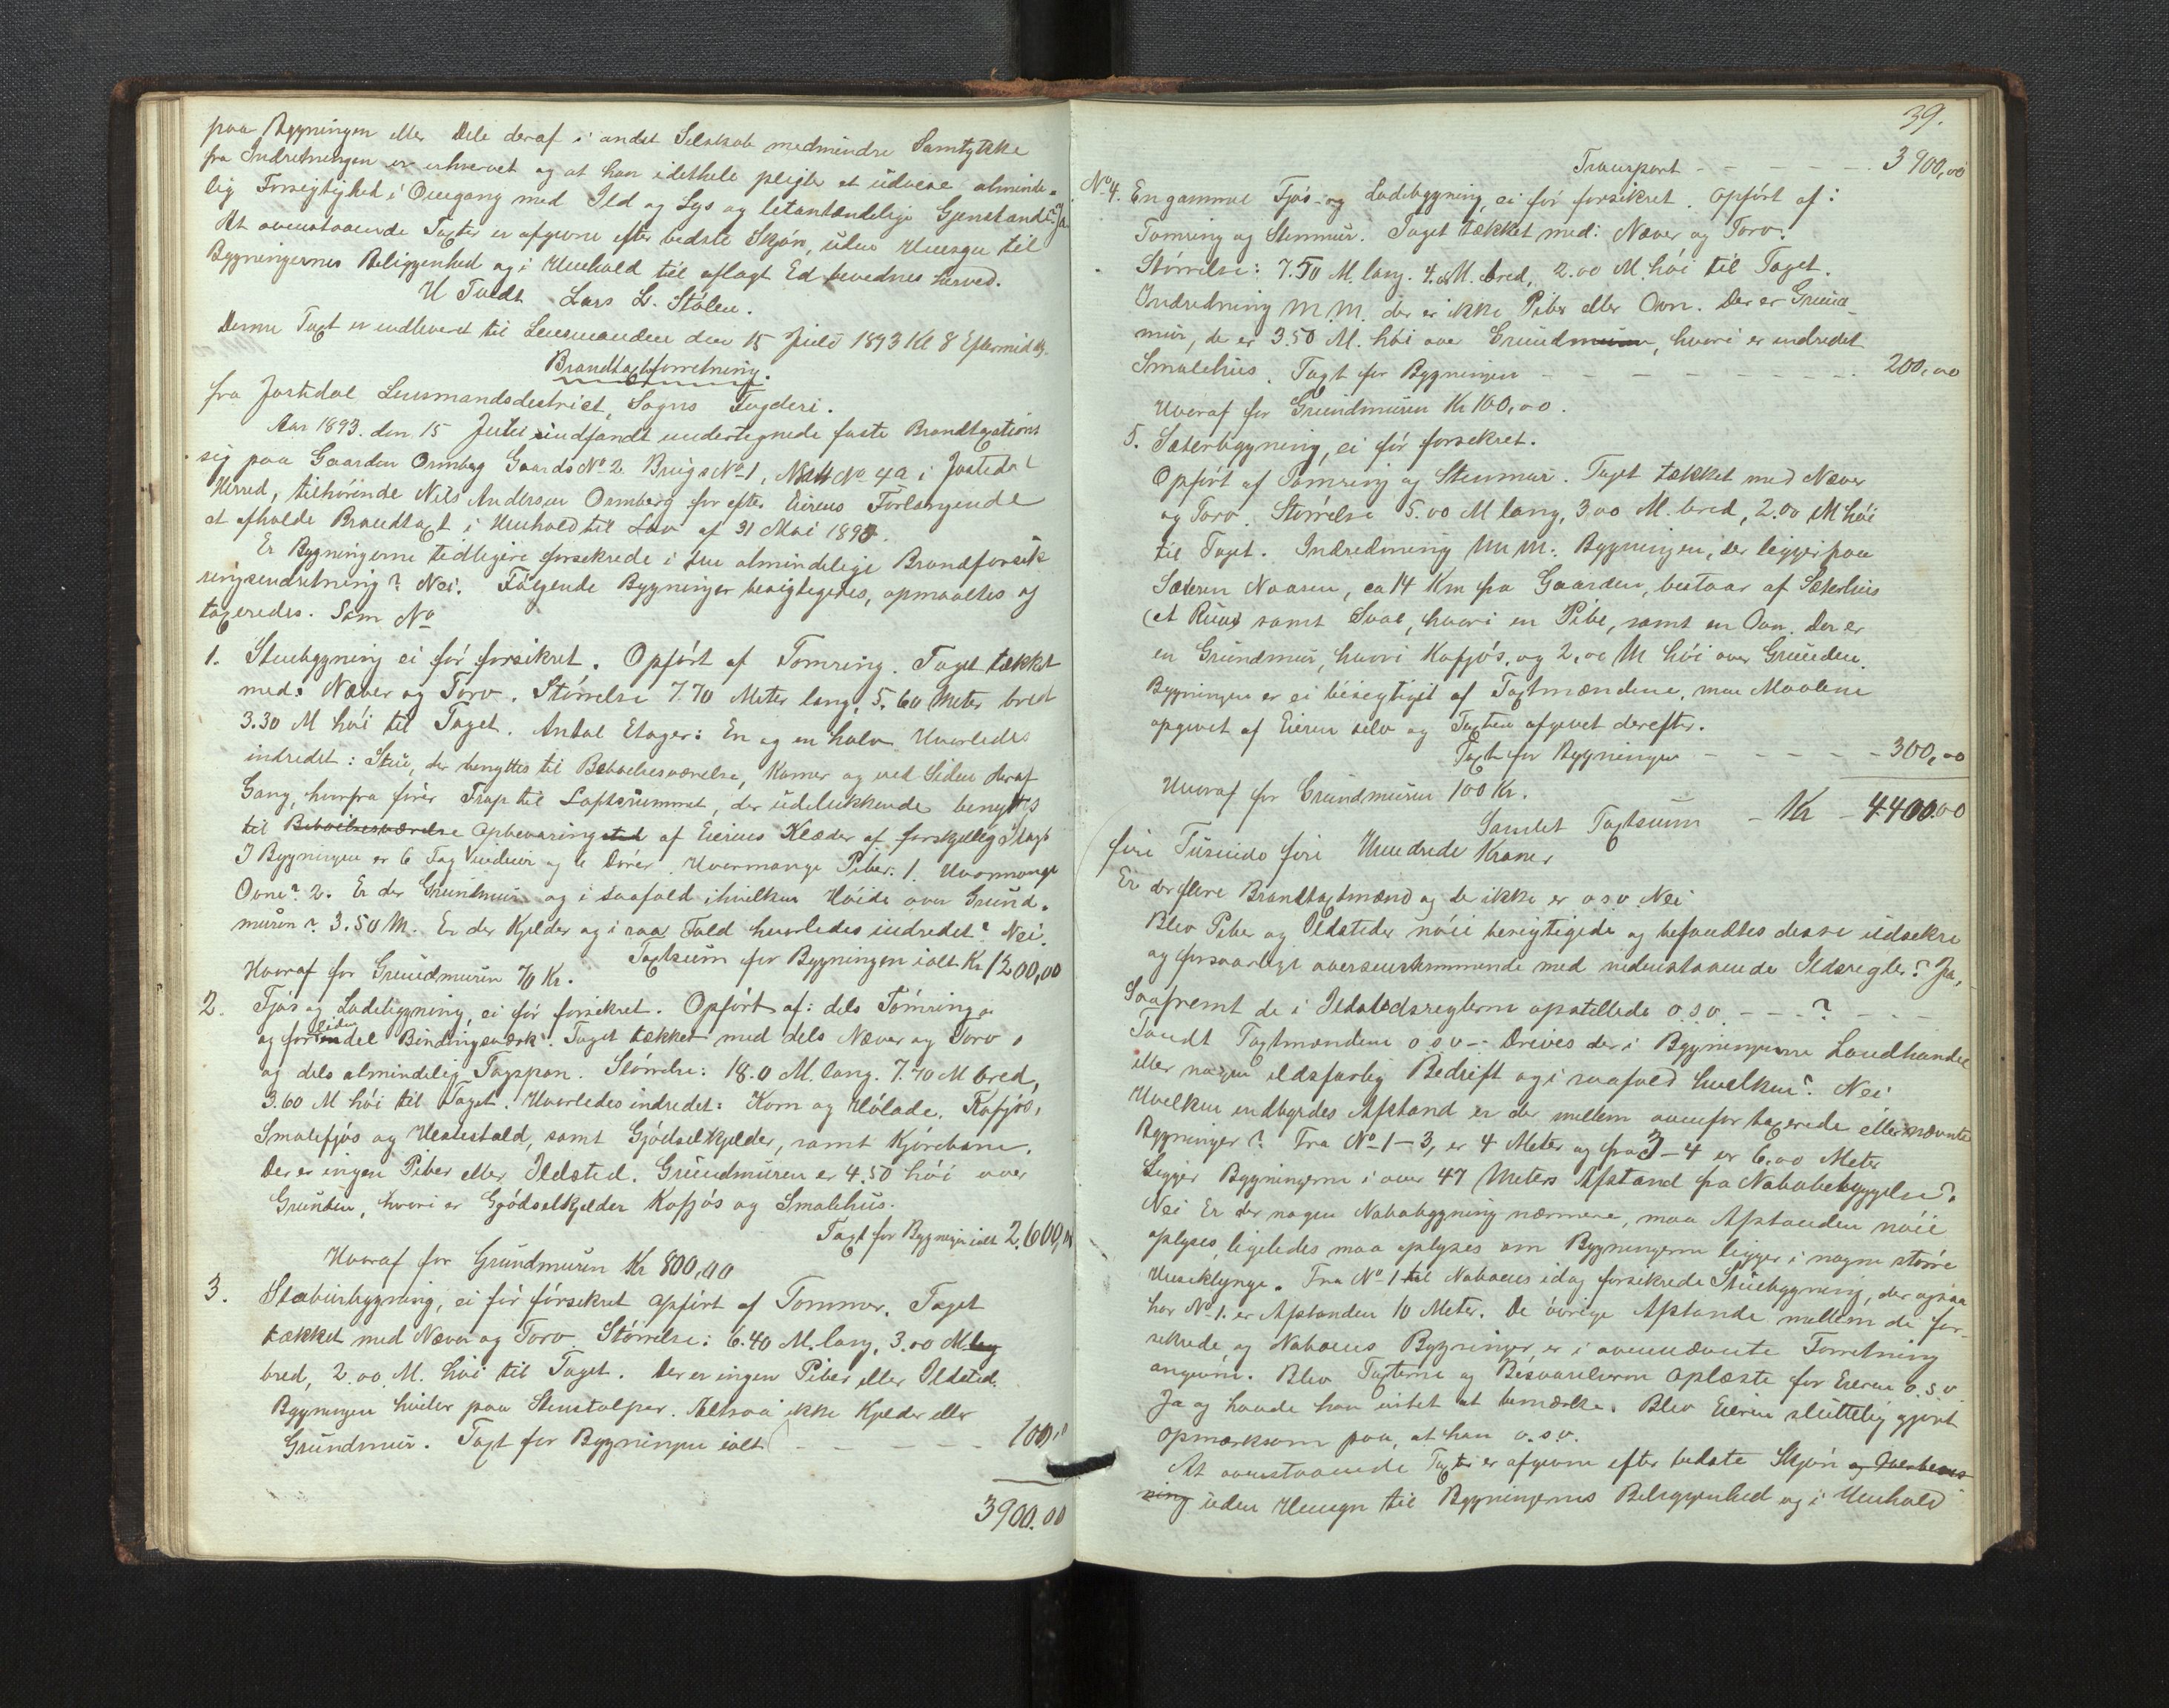 paa Bygningen eller Dele deraf i andet Selskab medmindre Samtykke
fra Indretningen er erhvervet og at han idethele plejer at udvise alminde-
lig Forsigtighed i Omgang med Ild og Lys og letantændelige Gjenstande? Ja
At ovenstaaende Taxter er afgivne efter bedste Skjøn, uden Hensyn til
Bygningernes Beliggenhed og i Henhold til aflagt Ed bevidnes herved.
Lars L. Stölen.
Denne Taxt er indleveret til Lensmanden den 15 Juli 1893 Kl 8 Eftermidg.
Brandtaxtforretning.
fra Jostedal Lensmandsdestrict, Sogns Fogderi.
Aar 1893. den 15 Juli indfandt undertegnede faste Brandtaxations
sig paa Gaarden Ormberg Gaards No 2 Brugs No 1, Matr No 4a i Jostedal
Herred, tilhörende Nils Andersen Ormberg for efter Eierens Forlangende
at afholde Brandtaxt i Henhold til Lov af 31 Mai 1890.
Er Bygningerne tidligere forsekrede i den almindelige Brandforsik
ringsindretning? Nei. Fölgende Bygninger besigtigedes, opmaaltes og
taxeredes. Som No
1. Stuebygning ei för forsikret. Opfört af Tomring. Taget tækket
med: Næver og Torv. Störrelse 7.70 Meter lang, 5.60 Meter bred
3.30 M höi til Taget. Antal Etager: En og en halv. Hvorledes
indredet: Stue, der benyttes til Beboelsesværelse, Kamer og ved Siden deraf
Gang, hvorfra förer Trap til Loftsrummet, der udelukkende benyttes
til Beboelsesværelse Opbevaringsted af Eierens Klæder af forskjellig Slags
I Bygningen er 6 Fag Vinduer og 6 Dörer. Hvormange Piber: 1. Hvormange
Ovne? 2. Er der Grundmur og i saafald ihvilken Höide over Grund-
muren? 3.50 M. Er der Kjelder og i saa Fald hvorledes indredet? Nei.
Taxtsum for Bygningen ialt Kr 1200,00
Hvoraf for Grundmuren 70 Kr.
2. Fjös og Ladebygning, ei för forsikret. Opfört af: dels Tömring
og for en del Bindingsværk. Taget tækket med dels Næver og Torv,
og dels almindelig Tagspon. Störrelse: 18.0 M. lang. 7.70 M bred,
3.60 M höi til Taget. Hvorledes indredet: Korn og Hölade, Kofjös,
Smalefjös og Hestestald, samt Gjödselkjelder, samt Kjörebane.
Der er ingen Piber eller Ildsted. Grundmuren er 4.50 höi over
Grunden, hvori er Gjödselkjelder Kofjös og Smalehus.
Taxt for Bygningen ialt 2.600,00
Hvoraf for Grundmuren Kr 800,00
3. Stabursbygning, ei för försekret opfört af Tommer. Taget
tækket med Næver og Torv Störrelse: 6.40 M. lang, 3.00 M lng
bred, 2.00 M. höi til Taget. Der er ingen Piber eller Ildsted.
Bygningen hviler paa Stenstolper. Altsaa ikke Kjelder eller
Grundmur. Taxt for Bygningen ialt - - - - - 100,00
3900.00
39.
Transport - - - - - 3900,00
No 4. En gammel Fjös- og Ladebygning, ei för forsikret. Opfört af:
Tomring og Stenmur. Taget tækket med: Næver og Torv.
Störrelse: 7.50 M. lang. 4. M. bred, 2.00 M. höi til Taget.
Indredning M.M. der er ikke Piber eller Ovn. Der er Grund-
mur, de er 3.50 M. höi over Grundmuren, hvori er indredet
Smalehus. Taxt for Bygningen - - - - - 200,00
Hvoraf for Grundmuren Kr 100,00.
5. Sæterbygning, ei för forsekret.
Opfört af Tomring og Stenmur. Taget tækket med Næver
og Torv. Störrelse 5.00 M lang, 3.00 M. bred, 2.00 M höi
til Taget. Indredning M.M.: Bygningen, der ligger paa
Sæteren Naasen, ca 14 Km fra Gaarden, bestaar af Sæterhus
(et Rum) samt Sval, hvori en Pibe, samt en Ovn. Der er
en Grundmur, hvori Kofjös, og 2,00 M höi over Grunden.
Bygningen er ei besigtiget af Taxtmændene, men Maalene
opgivet af Eieren selv og Taxten afgivet derefter.
Taxt for Bygningen - - - - - 300,00
Hvoraf for Grundmuren 100 Kr.
Samlet Taxtsum - Kr - 4400.00
fire Tusinde fire Hundrede Kroner
Er der flere Brandtaxtmænd og de ikke er o.s.v. Nei
Blev Piber og Ildsteder nöie besigtigede og befandtes disse udsekre
og forsvarlige overensstemmende med nedenstaaende Ildsregler? Ja,
Saafremt de i Ildstedsreglerne opstillede o.s.v. - - - ? - - -
Fandt Taxtmændene o.s.v - Drives der i Bygningerne Landhandel
eller nogen ildsfarlig Bedrift og i saafald hvilken? Nei
Hvilken indbyrdes Afstand er der mellem ovenfor taxerede eller nævnte
Bygninger? Fra No 1-3, er 4 Meter og fra 3-4 er 6,00 Meter
Ligger Bygningerne i over 47 Meters Afstand fra Nabobebyggelse?
Nei Er der nogen Nabobygning nærmere, maa Afstanden nöie
oplyses, ligeledes maa oplyses om Bygningerne ligger i nogen större
Huseklynge. Fra No 1 til Naboens idag forsekrede Stuebygning, der ogsaa
har No 1. er Afstanden 10 Meter. De övrige Afstande mellem de for-
sekrede og Naboens Bygninger er i ovennævnte Forretning
angivne. Blev Taxterne og Besvarelserne oplæste for Eieren o.s.v
Ja og havde han intet at bemærke. Blev Eieren sluttelig gjort
opmærksom paa, at han o.s.v.
At ovenstaaende Taxter er afgivne efter bedste Skjön og Overbevis
ning uden Hensyn til Bygningernes Beliggenhed og i Henhold